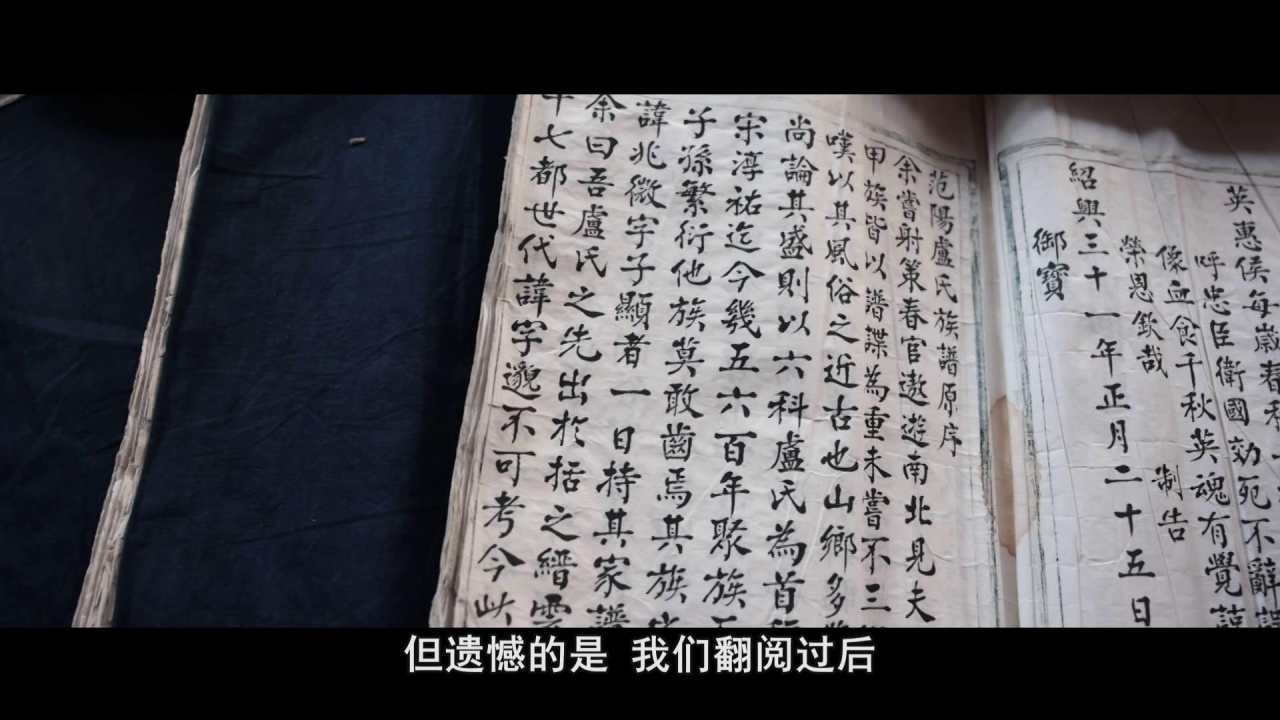 英惠侯每歲春秋
呼忠臣衛國効死不辭
像血食千秋英魂有覺
榮恩欽哉 制告
紹興三十一年正月二十五日
御寶
范陽盧氏族譜原序
余嘗射策春官遨遊南北見夫
甲族皆以譜諜為重未嘗不三
嘆以其風俗之近古也山鄉多
尚論其盛則以六科盧氏為首
宋淳祐迄今幾五六百年聚族
子孫繁衍他族莫敢齒焉其族
諱兆微字子顯者一日持其家譜
余曰吾盧氏之先出於括之縉雲
十七都世代諱字邈不可考今
但遗憾的是 我们翻阅过后